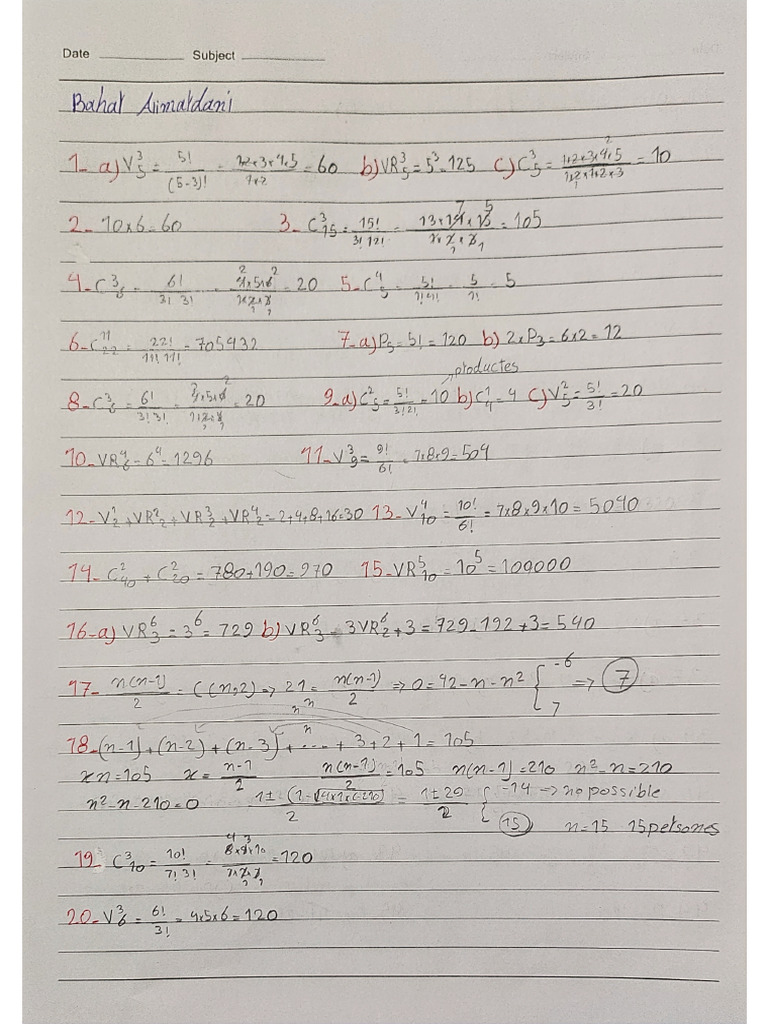 Date ____________ Subject ____________
Bahar Alimardani
1- a) V₅³ = 5!/(5-3)! = 1×2×3×4×5/1×2 = 60 b) VR₅³ = 5³ = 125 c) C₅³ = 1×2×3×4×5/1×2×1×2×3 = 10
2- 10×6=60 3- C₁₅³ = 15!/3! 12! = 13×14×15/1×2×3 = 105
4- C₆³ = 6!/3! 3! = 4×5×6/1×2×3 = 20 5- C₅⁴ = 5!/1! 4! = 5/1! = 5
6- C₂₂¹¹ = 22!/11! 11! = 705432 7- a) P₅ = 5! = 120 b) 2×P₃ = 6×2 = 12
productes
8- C₆³ = 6!/3! 3! = 4×5×6/1×2×3 = 20 9- a) C₅² = 5!/3! 2! = 10 b) C₄¹ = 4 c) V₅² = 5!/3! = 20
10- VR₆⁴ = 6⁴ = 1296 11- V₉³ = 9!/6! = 7×8×9 = 504
12- V₂¹ + VR₂² + VR₂³ + VR₂⁴ = 2+4+8+16=30 13- V₁₀⁴ = 10!/6! = 7×8×9×10 = 5040
14- C₄₀² + C₂₀² = 780+190=970 15- VR₁₀⁵ = 10⁵ = 100000
16- a) VR₃⁶ = 3⁶ = 729 b) VR₃⁶ - 3VR₂⁶ + 3 = 729 - 192 + 3 = 540
17- n(n-1)/2 = C(n,2) => 21 = n(n-1)/2 => 0 = 42 - n - n² { -6 7 => 7
n n n
18- (n-1) + (n-2) + (n-3) + .... + 3 + 2 + 1 = 105
x n = 105 x = n-1/2 n(n-1)/2 = 105 n(n-1) = 210 n² - n = 210
n² - n - 210 = 0 1± (1-√4×1×(-210)/2 = 1±29/2 { -14 -> no possible 15 n = 15 15 persones
19- C₁₀³ = 10!/7! 3! = 8×9×10/1×2×3 = 120
20- V₆³ = 6!/3! = 4×5×6 = 120